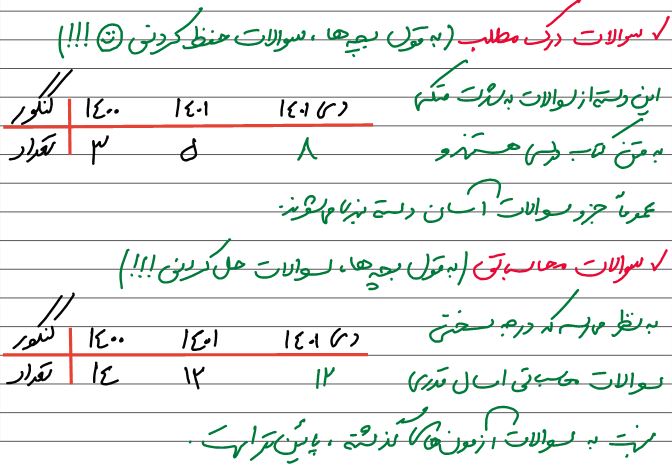 ✓ سوالات درک مطلب (به قول بچه ها ، سوالات حفظ کردنی ☺ !!!)
این دسته از سوالات به شدت متکی
کنکور ۱۴۰۰ ۱۴۰۱ دی ۱۴۰۱
به متن کتاب درسی هستند و
تعداد ۳ ۵ ۸
عموماً جزو سوالات آسان دسته بندی می‌شوند.
✓ سوالات محاسباتی (به قول بچه ها، سوالات حل کردنی !!!)
به نظر می‌رسد که درجه سختی
کنکور ۱۴۰۰ ۱۴۰۱ دی ۱۴۰۱
سوالات محاسباتی امسال قدری
تعداد ۱۴ ۱۲ ۱۲
نسبت به سوالات آزمون‌های گذشته ، پائین تر است .